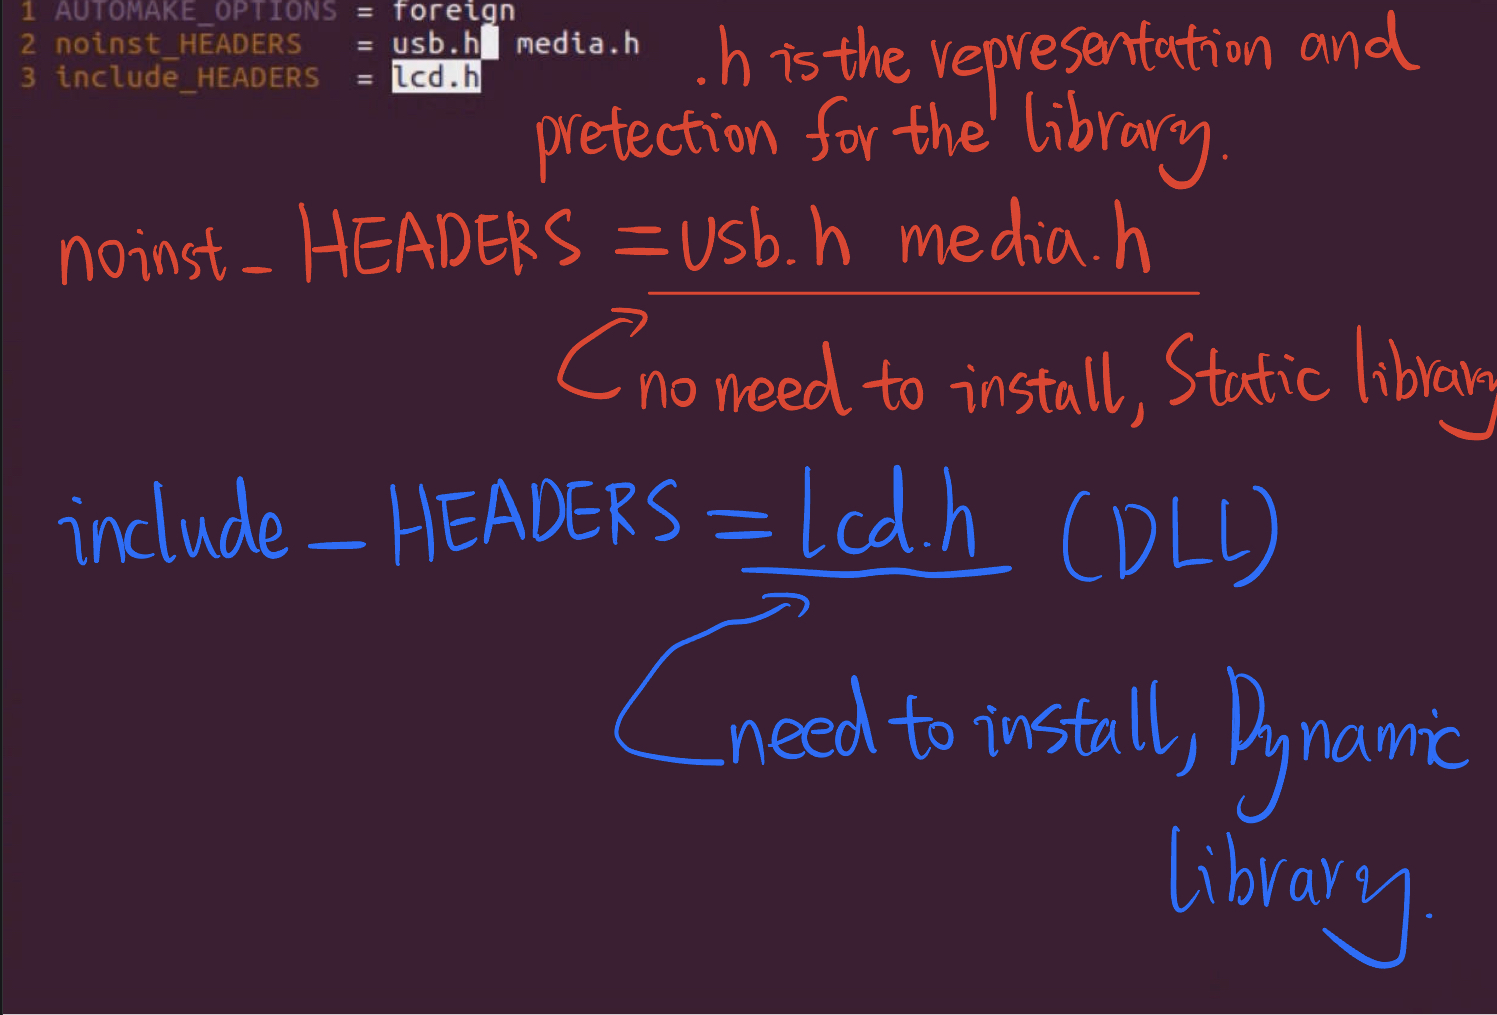 1 AUTOMAKE_OPTIONS = foreign
2 noinst_HEADERS = usb.h media.h
3 include_HEADERS = lcd.h
.h is the representation and
pretection for the library.
noinst_HEADERS = usb.h media.h
no need to install, Static library
include_HEADERS = lcd.h (DLL)
need to install, Dynamic
library.